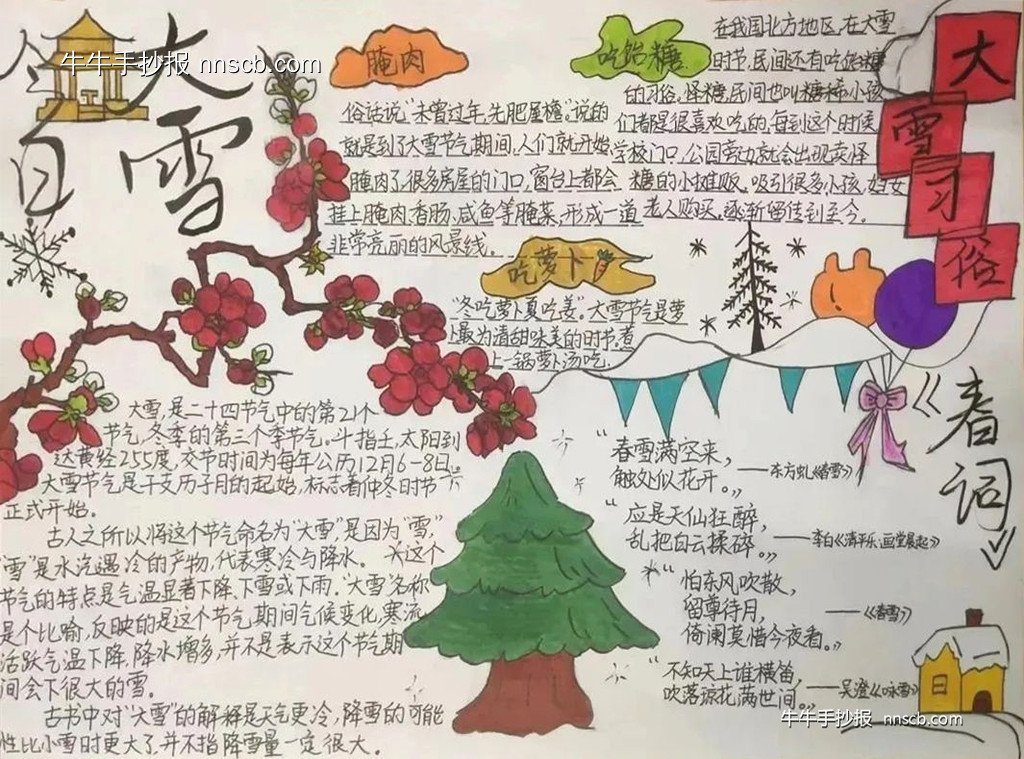 牛牛手抄报 nnscb.com
今日
大雪
腌肉
俗话说“未曾过年,先肥屋檐”。说的
就是到了大雪节气期间,人们就开始
腌肉了,很多房屋的门口,窗台上都会
挂上腌肉、香肠、咸鱼等腌菜,形成一道
非常亮丽的风景线。
吃饴糖
在我国北方地区,在大雪
时节,民间还有吃饴糖
的习俗,怪糖,民间也叫糖稀,小孩
们都是很喜欢吃的,每到这个时候
学校门口,公园旁边就会出现卖怪
糖的小摊贩,吸引很多小孩,妇女
老人购买,逐渐留传到至今。
大雪习俗
吃萝卜
“冬吃萝卜夏吃姜”。大雪节气是萝
卜最为清甜味美的时节,煮
上一锅萝卜汤吃.
大雪,是二十四节气中的第21个
节气,冬季的第三个季节气。斗指壬,太阳到
达黄经255度,交节时间为每年公历12月6-8日。
大雪节气是干支历子月的起始,标志着仲冬时节
正式开始。
古人之所以将这个节气命名为“大雪”,是因为“雪”,
“雪”是水汽遇冷的产物,代表寒冷与降水。这个
节气的特点是气温显著下降、下雪或下雨。“大雪”名称
是个比喻,反映的是这个节气期间气候变化,寒流
活跃气温下降,降水增多,并不是表示这个节气期
间会下很大的雪.
古书中对“大雪”的解释是天气更冷,降雪的可能
性比小雪时更大了,并不指降雪量一定很大。
《春词》
“春雪满空来,
触处似花开。”——东方虬《春雪》
“应是天仙狂醉,
乱把白云揉碎。”——李白《清平乐·画堂晨起》
“怕东风吹散,
留尊待月,——《春雪》
倚阑莫惜今夜看。”
“不知天上谁横笛,
吹落凉花满世间。”——吴澄《咏雪》
牛牛手抄报 nnscb.com